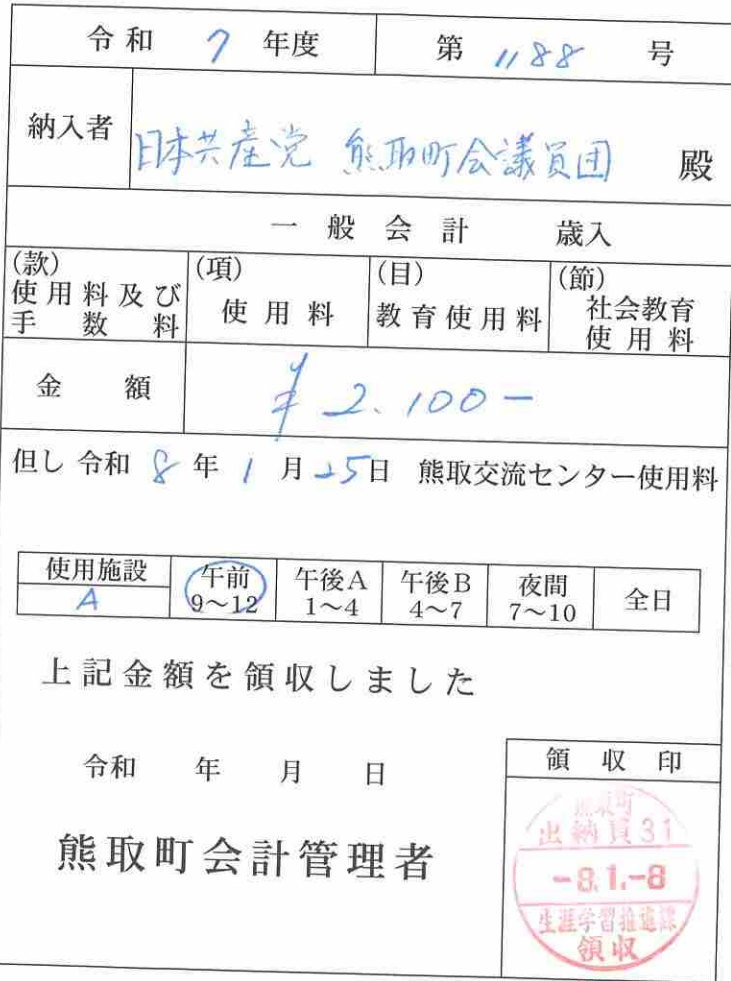 令和 7 年度 第 1188 号
納入者 日本共産党 熊取町会議員団 殿
一般会計 歳入
(款) (項) (目) (節)
使用料及び手数料 使用料 教育使用料 社会教育使用料
金額 ¥2.100-
但し 令和 8 年 1 月 25日 熊取交流センター使用料
使用施設 午前 午後A 午後B 夜間 全日
A 9~12 1~4 4~7 7~10
上記金額を領収しました
令和 年 月 日
領収印
熊取町会計管理者
熊取町
出納員31
-8.1.-8
生涯学習推進課
領収